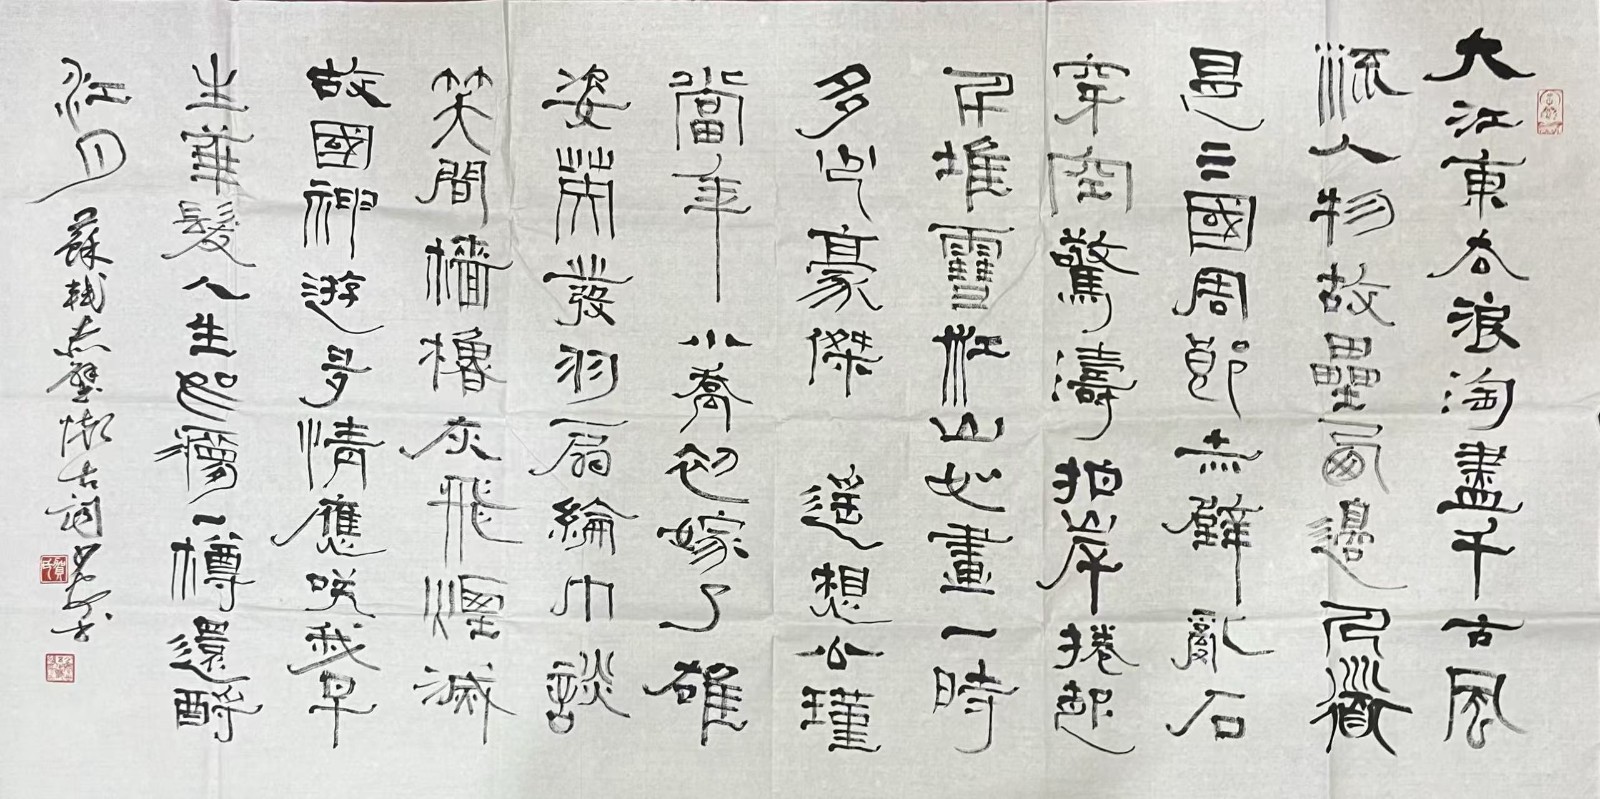 大江東去浪淘盡千古風
流人物故壘西邊人道
是三國周郎赤壁亂石
穿空驚濤拍岸捲起
千堆雪江山如畫一時
多少豪傑 遙想公瑾
當年 小喬初嫁了雄
姿英發羽扇綸巾談
笑間檣櫓灰飛煙滅
故國神遊多情應咲我早
生華髮人生如夢一樽還酹
江月 蘇軾赤壁懷古詞